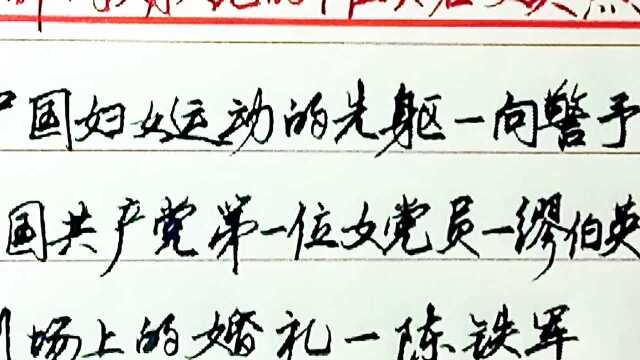 中国妇女运动的先躯一向警予
国共产党第一位女党员一缪伯英
场上的婚礼一陈铁军